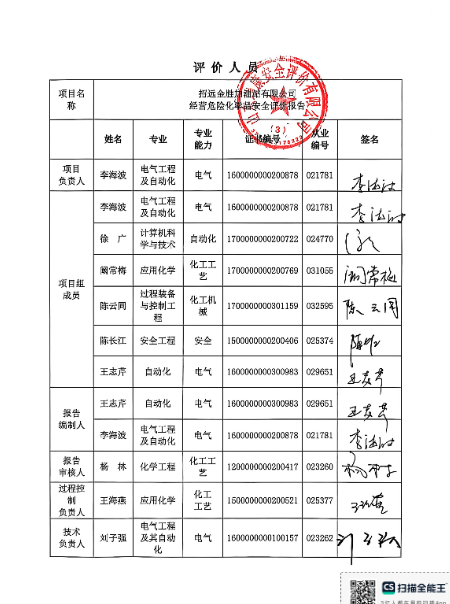 评价人员
项目名
称
招远金胜加油站有限公司
经营危险化学品安全评价报告
姓名 专业 专业
能力 证书编号 从业
编号 签名
项目
负责人 李海波 电气工程
及自动化 电气 1600000000200878 021781
项目组
成员
李海波 电气工程
及自动化 电气 1600000000200878 021781
徐 广 计算机科
学与技术 自动化 1700000000200722 024770
阚常梅 应用化学 化工工
艺 1700000000200769 031055
陈云同 过程装备
与控制工
程 化工机
械 1700000000301159 032595
陈长江 安全工程 安全 1500000000200406 025374
王志芹 自动化 电气 1600000000300983 029651
报告
编制人
王志芹 自动化 电气 1600000000300983 029651
李海波 电气工程
及自动化 电气 1600000000200878 021781
报告
审核人 杨 林 化学工程 化工工
艺 1200000000200417 023260
过程控
制
负责人 王海燕 应用化学 化工
工艺 1500000000200521 025377
技术
负责人 刘子强 电气工程
及其自动
化 电气 1600000000100157 023262
(3)
CS 扫描全能王